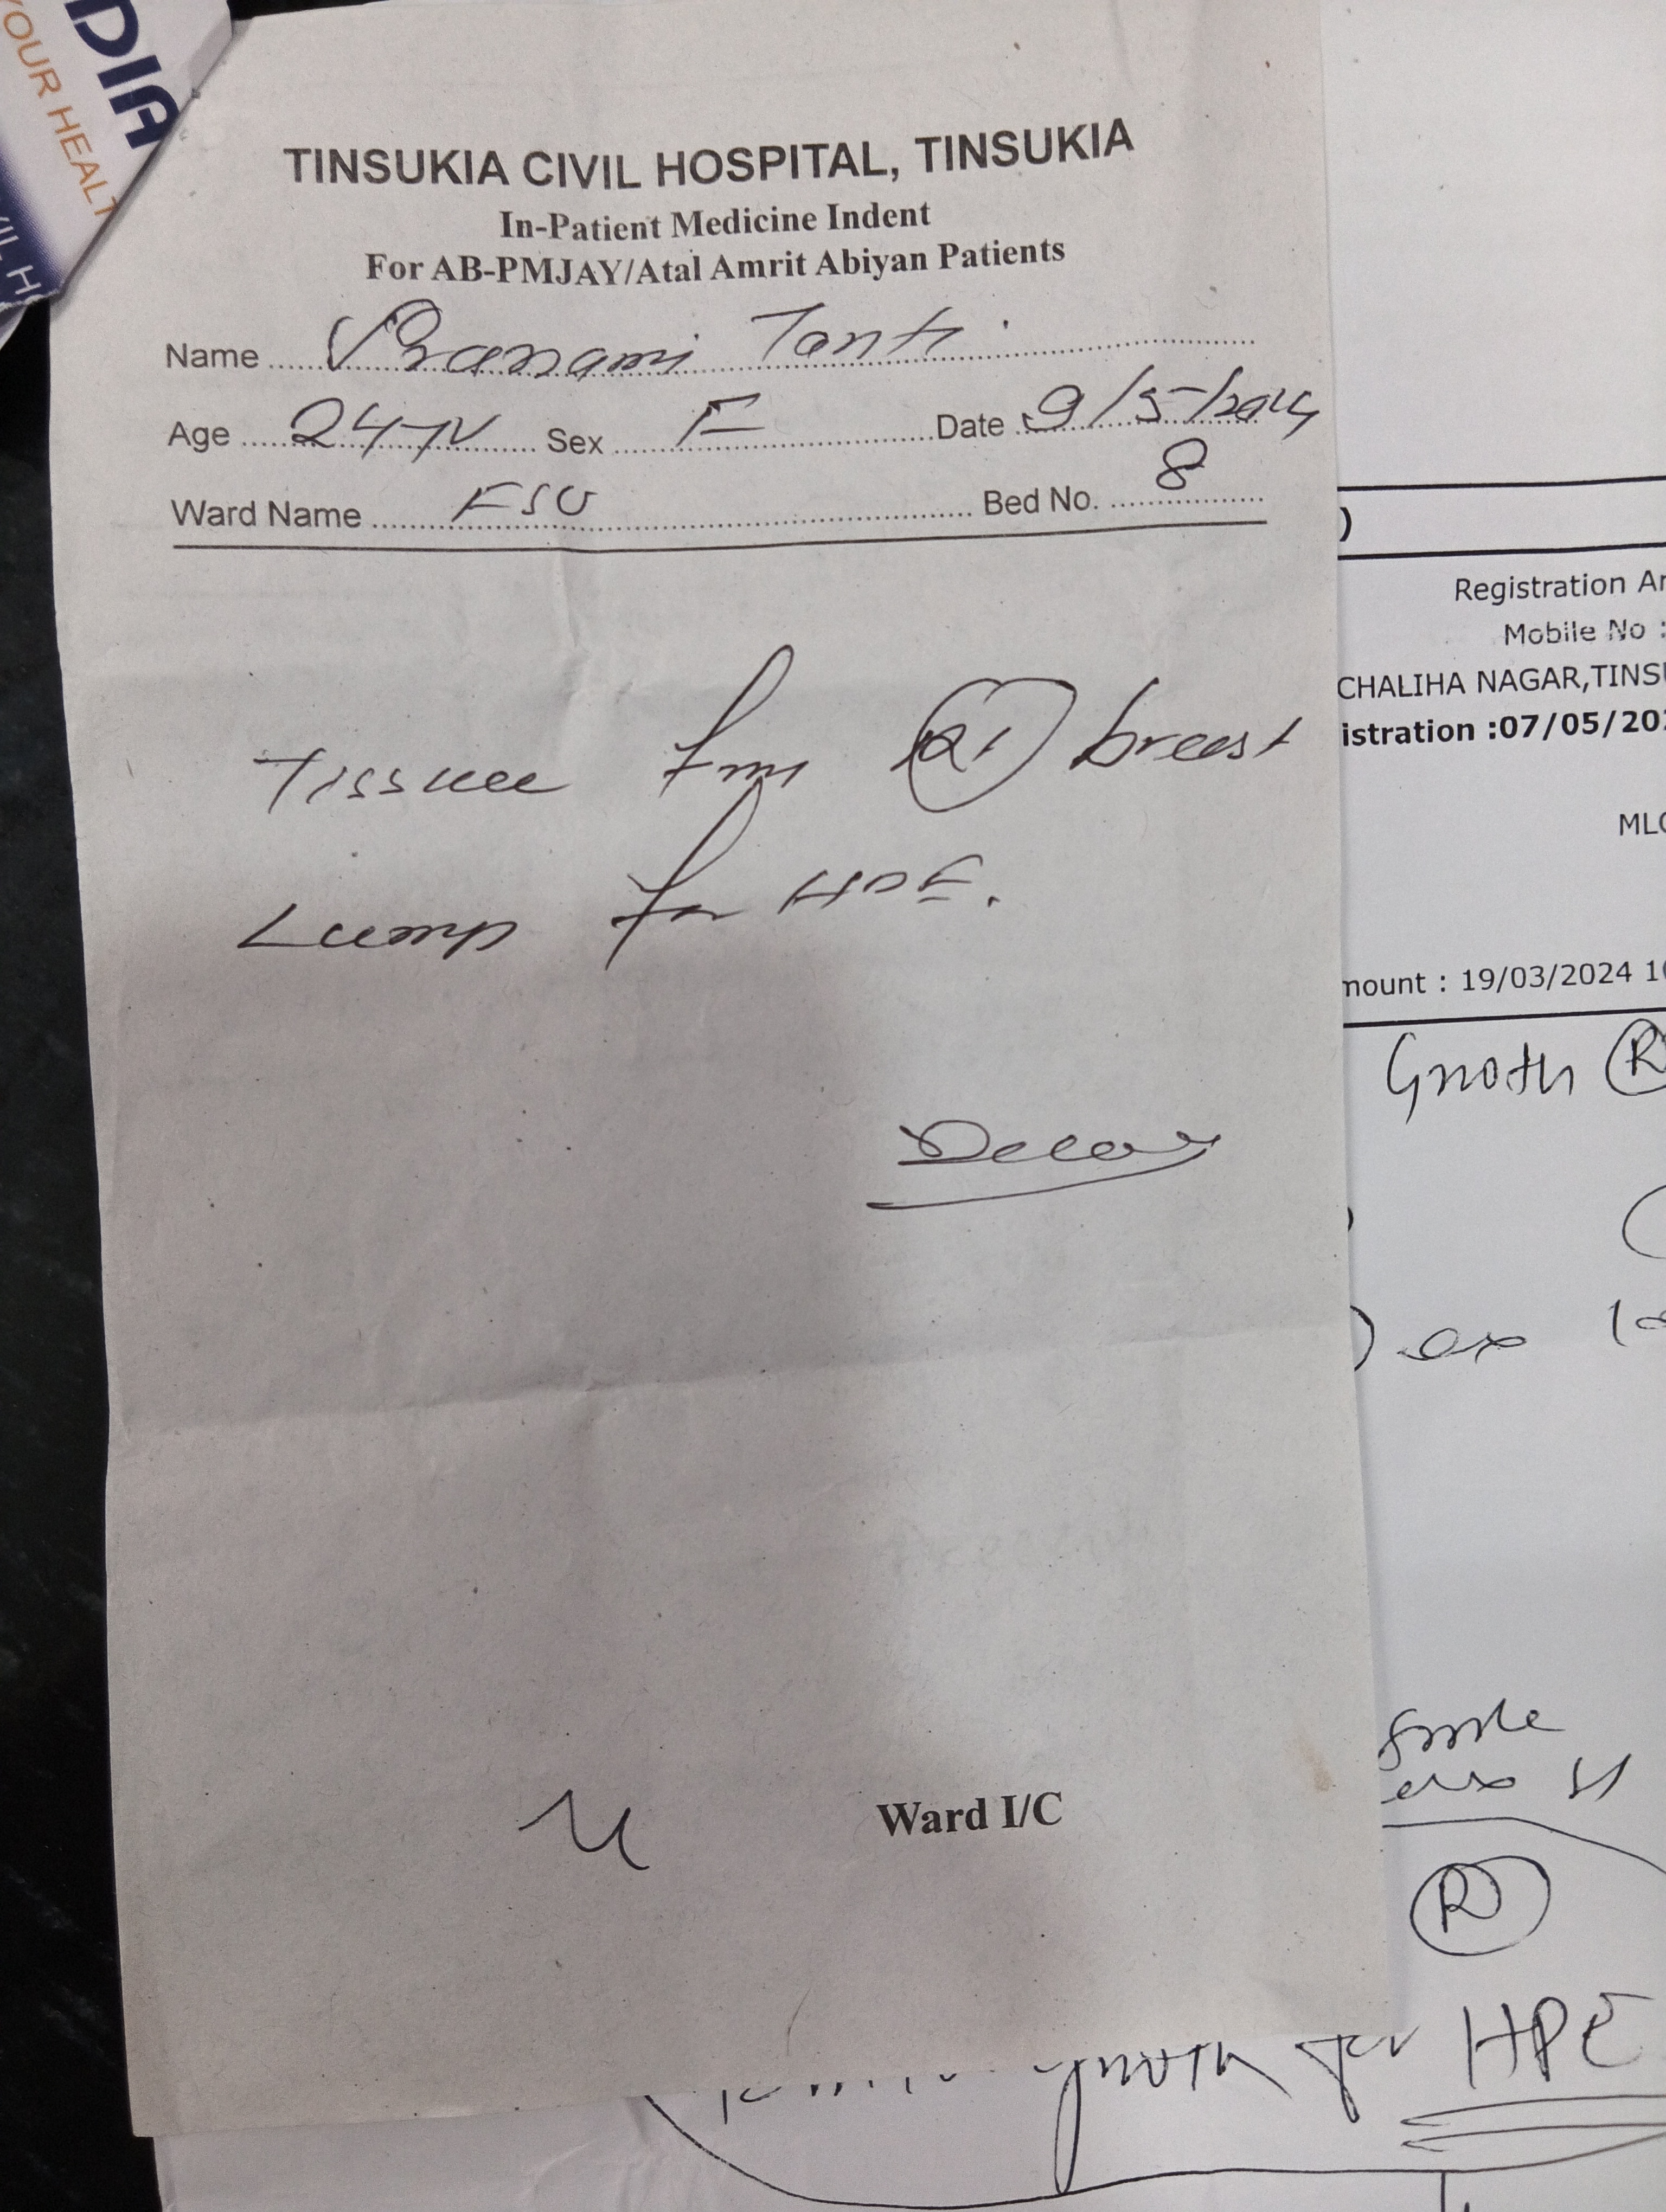 DIA
YOUR HEALT
TINSUKIA CIVIL HOSPITAL, TINSUKIA
In-Patient Medicine Indent
For AB-PMJAY/Atal Amrit Abiyan Patients
Name Pranami Tanti
Age 24 Sex F Date 9/5/2024
Ward Name FSU Bed No. 8
Tissue from Rt breast
Lump for HPE.
Ward I/C
)
Registration
Mobile No :
CHALIHA NAGAR,TINS
istration :07/05/20
MLC
mount : 19/03/2024 1
Growth R
R
growth for HPE